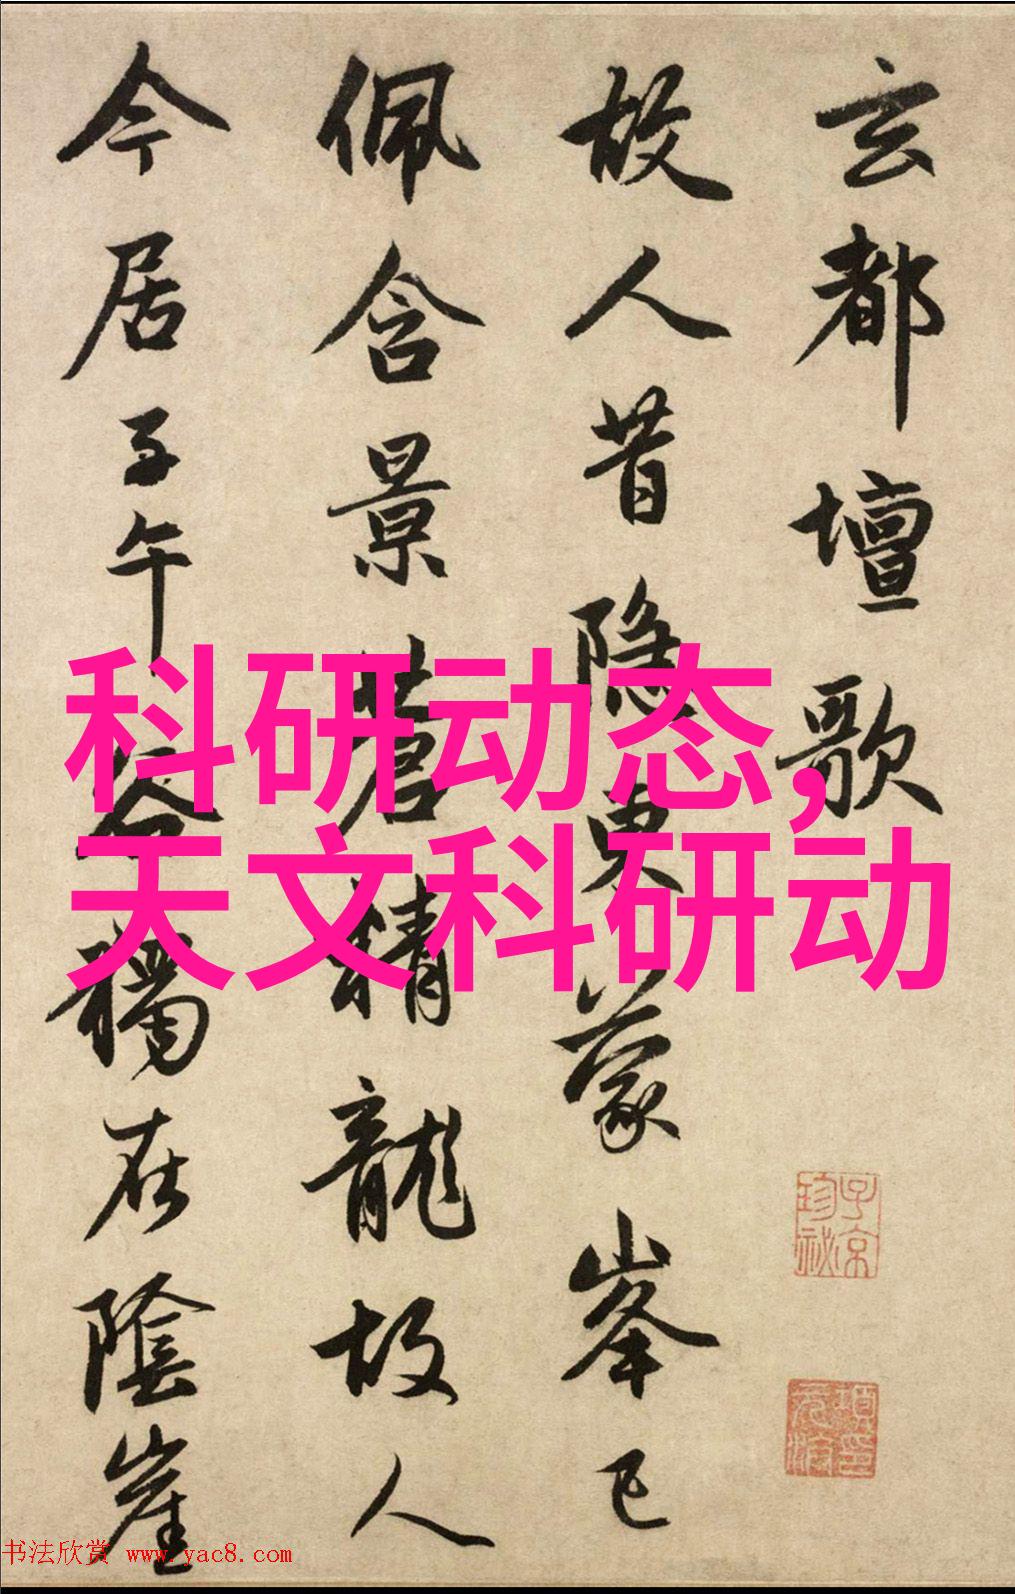 玄都壇歌
故人昔隐東蒙峯已
佩含景蒼精龍故人
今居子午谷獨在陰崖
科研动态,
天文科研动
子京
珍祕
书法欣赏 www.yac8.com